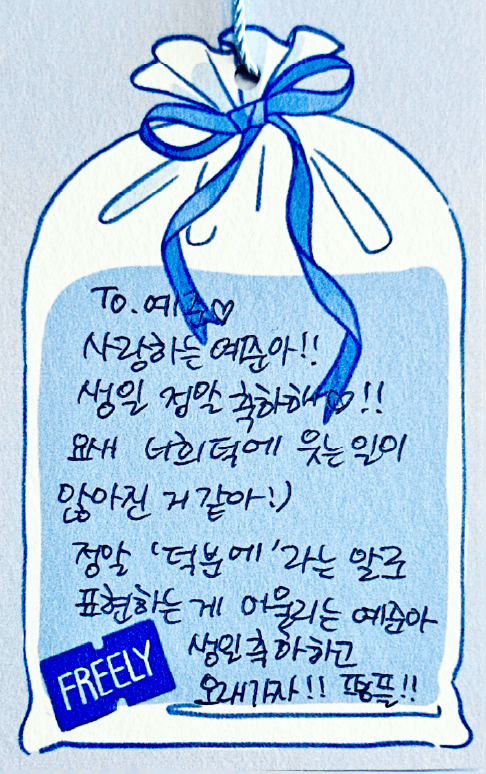 To. 예준♡
사랑하는 예준아!!
생일 정말 축하해♡!!
요새 너희덕에 웃는일이
많아진 거 같아!)
정말 '덕분에'라는 말로
표현하는 게 어울리는 예준아
생일축하하고
오래가자!! 펑플!!
FREELY